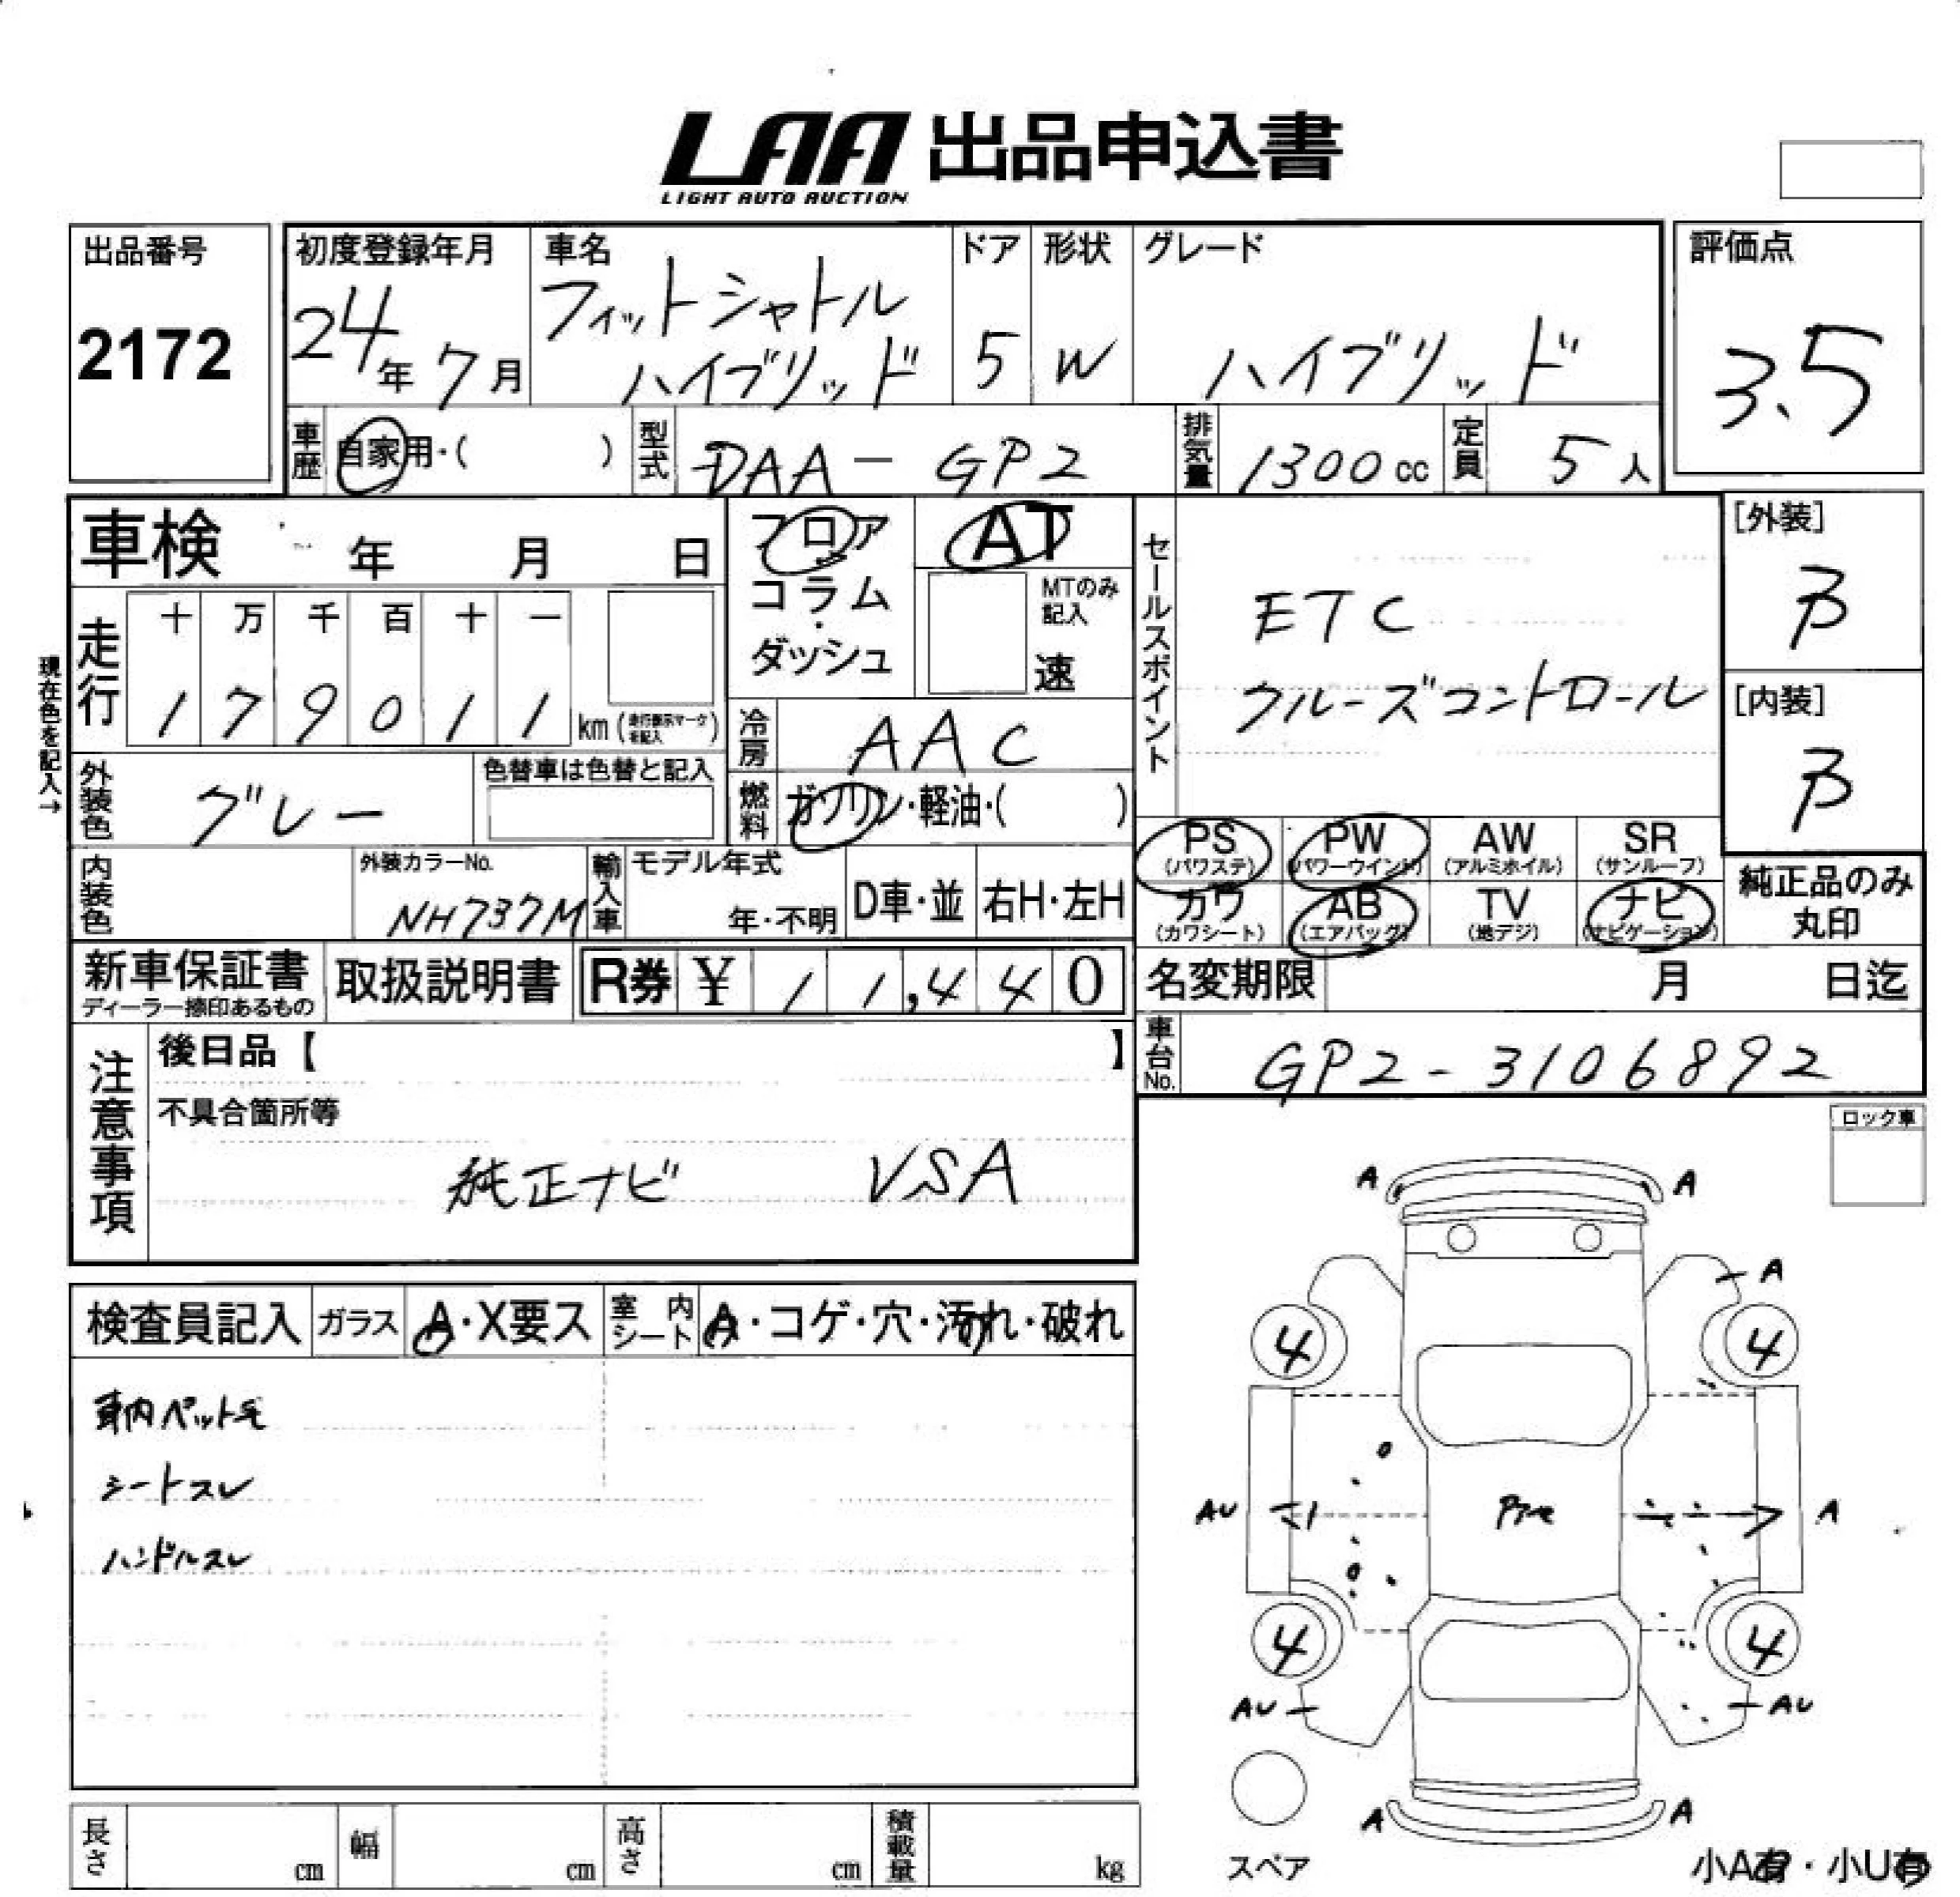 LAA 出品申込書
LIGHT AUTO AUCTION
出品番号
2172
初度登録年月
24年 7月
車名
フィットシャトル
ハイブリッド
ドア
5
形状
W
グレード
ハイブリッド
評価点
3.5
車歴 自家用・( )
型式 DAA - GP2
排気量 1300 cc
定員 5 人
車検 年 月 日
フロア
コラム
・
ダッシュ
AT
MTのみ
記入
速
セールスポイント
ETC
クルーズコントロール
[外装]
B
[内装]
B
現在色を記入→
走行
十 万 千 百 十 一
1 7 9 0 1 1 km (走行表示マークを記入)
冷房 AAC
外装色 グレー
色替車は色替と記入
燃料 ガソリン・軽油・( )
PS
(パワステ)
PW
(パワーウインド)
AW
(アルミホイル)
SR
(サンルーフ)
カワ
(カワシート)
AB
(エアバッグ)
TV
(地デジ)
ナビ
(ナビゲーション)
純正品のみ
丸印
内装色
外装カラーNo.
NH737M
輸入車
モデル年式
年・不明
D車・並
右H・左H
新車保証書
ディーラー捺印あるもの
取扱説明書
R券 ¥ 1 1,4 4 0
名変期限 月 日迄
車台No. GP2-3106892
注意事項
後日品【 】
不具合箇所等
純正ナビ VSA
ロック車
検査員記入
ガラス A・X要ス
室内シート A・コゲ・穴・汚れ・破れ
車内ペット毛
シートスレ
ハンドルスレ
A A
A
4 4
AU A
4 4
AU AU
A A
スペア
小A有・小U有
長さ cm
幅 cm
高さ cm
積載量 kg